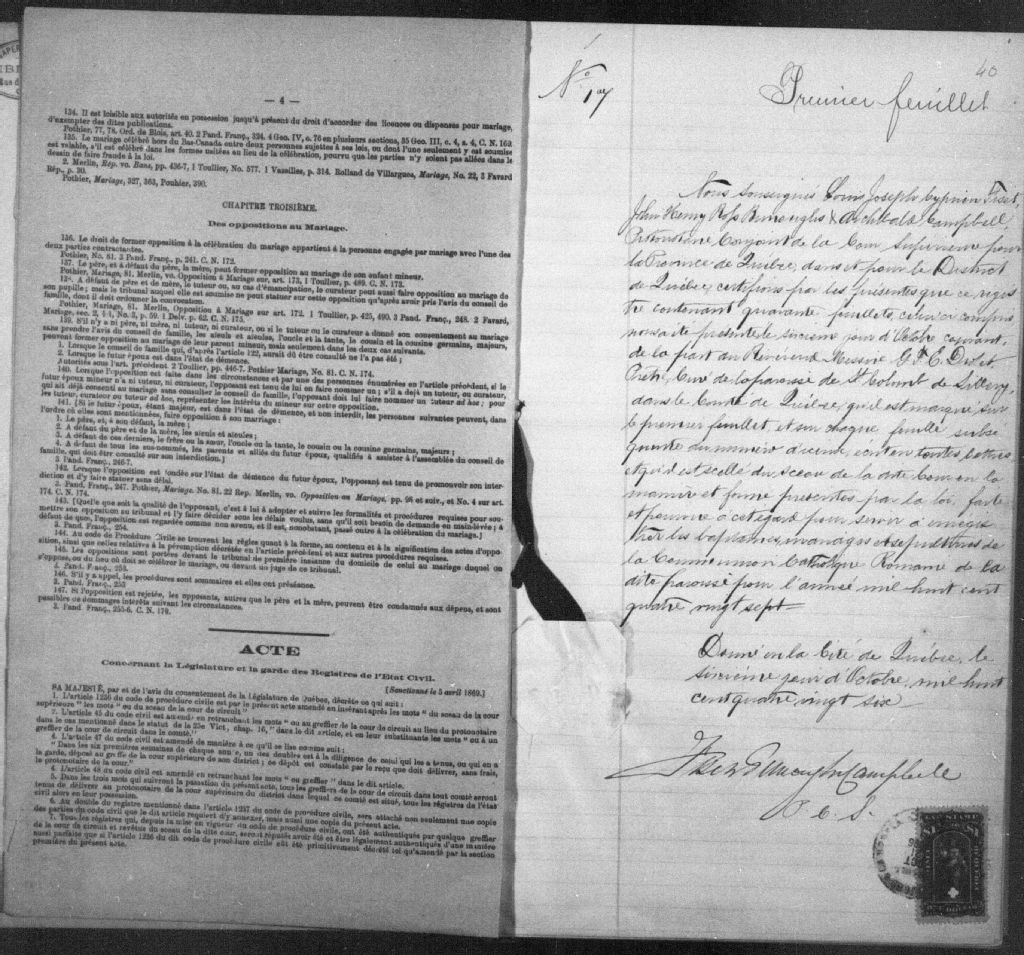 — 4 —
134. Il est loisible aux autorités en possession jusqu'à présent du droit d'accorder des licences ou dispenses pour mariage,
d'exempter des dites publications.
Pothier, 77, 78. Ord. de Blois, art. 40. 2 Pand. Franç., 324. 4 Geo. IV, c. 76 en plusieurs sections, 35 Geo. III, c. 4, s. 4, C. N. 169.
135. Le mariage célébré hors du Bas-Canada entre deux personnes sujettes à ses lois, ou dont l'une seulement y est soumise
est valable, s'il est célébré dans les formes usitées au lieu de la célébration, pourvu que les parties n'y soient pas allées dans le
dessein de faire fraude à la loi.
2. Merlin, Rép. vo. Bans, pp. 436-7, 1 Toullier, No. 577. 1 Vazeilles, p. 314. Rolland de Villargues, Mariage, No. 22, 3 Favard
Rép., p. 30.
Pothier, Mariage, 327, 363, Pouhier, 390.
CHAPITRE TROISIÈME.
Des oppositions au Mariage.
136. Le droit de former opposition à la célébration du mariage appartient à la personne engagée par mariage avec l'une des
deux parties contractantes.
Pothier, No. 81. 3 Pand. Franç., p. 241. C. N. 172.
137. Le père, et à défaut du père, la mère, peut former opposition au mariage de son enfant mineur.
Pothier, Mariage, 81. Merlin, vo. Opposition à Mariage sur art. 173, 1 Toullier, p. 489. C. N. 173.
138. A défaut de père et de mère, le tuteur ou, au cas d'émancipation, le curateur peut aussi faire opposition au mariage de
son pupille; mais le tribunal auquel elle est soumise ne peut statuer sur cette opposition qu'après avoir pris l'avis du conseil de
famille, dont il doit ordonner la convocation.
Pothier, Mariage, 81. Merlin, Opposition à Mariage sur art. 172. 1 Toullier, p. 425, 490. 3 Pand. Franç., 248. 2 Favard,
Mariage, sec. 2, § 1, No. 3, p. 59. 1 Delv. p. 62. C. N. 175.
139. S'il n'y a ni père, ni mère, ni tuteur, ni curateur, ou si le tuteur ou le curateur a donné son consentement au mariage
sans prendre l'avis du conseil de famille, les aieuls et aieules, l'oncle et la tante, le cousin et la cousine germains, majeurs,
peuvent former opposition au mariage de leur parent mineur, mais seulement dans les deux cas suivants.
1. Lorsque le conseil de famille qui, d'après l'article 122, aurait dû être consulté ne l'a pas été;
2. Lorsque le futur époux est dans l'état de démence.
Autorités sous l'art. précédent 2 Toullier, pp. 446-7. Pothier Mariage, No. 81. C. N. 174.
140. Lorsque l'opposition est faite dans les circonstances et par une des personnes énumérées en l'article précédent, si le
futur époux mineur n'a ni tuteur, ni curateur, l'opposant est tenu de lui en faire nommer un; s'il a déjà un tuteur, ou curateur,
qui ait déjà consenti au mariage sans consulter le conseil de famille, l'opposant doit lui faire nommer un tuteur ad hoc; pour
les tuteur, curateur ou tuteur ad hoc, représenter les intérêts du mineur sur cette opposition.
141. [Si le futur époux, étant majeur, est dans l'état de démence, et non interdit, les personnes suivantes peuvent, dans
l'ordre où elles sont mentionnées, faire opposition à son mariage:
1. Le père, et, à son défaut, la mère;
2. A défaut du père et de la mère, les aieuls et aieules;
3. A défaut de ces derniers, le frère ou la sœur, l'oncle ou la tante, le cousin ou la cousine germains, majeurs;
4. A défaut de tous les sus-nommés, les parents et alliés du futur époux, qualifiés à assister à l'assemblée du conseil de
famille, qui doit être consulté sur son interdiction.]
3 Pand. Franç., 246-7.
142. Lorsque l'opposition est fondée sur l'état de démence du futur époux, l'opposant est tenu de promouvoir son inter-
diction et d'y faire statuer sans délai.
2. Pand. Franç., 247. Pothier, Mariage. No. 81. 22 Rep. Merlin, vo. Opposition au Mariage, pp. 98 et suiv., et No. 4 sur art.
174. C. N. 174.
143. [Quelle que soit la qualité de l'opposant, c'est à lui à adopter et suivre les formalités et procédures requises pour sou-
mettre son opposition au tribunal et l'y faire décider sous les délais voulus, sans qu'il soit besoin de demande en mainlevée; à
défaut de quoi, l'opposition est regardée comme non avenue, et il est, nonobstant, passé outre à la célébration du mariage.]
3. Pand. Franç., 254.
144. Au code de Procédure Civile se trouvent les règles quant à la forme, au contenu et à la signification des actes d'oppo-
sition, ainsi que celles relatives à la péremption décrétée en l'article précédent et aux autres procédures requises.
145. Les oppositions sont portées devant le tribunal de première instance du domicile de celui au mariage duquel on
s'oppose, ou du lieu où doit se célébrer le mariage, ou devant un juge de ce tribunal.
3. Pand. Franç., 253.
146. S'il y a appel, les procédures sont sommaires et elles ont préséance.
3. Pand. Franç., 253
147. Si l'opposition est rejetée, les opposants, autres que le père et la mère, peuvent être condamnés aux dépens, et sont
passibles de dommages intérêts suivant les circonstances.
3. Pand. Franç., 255-6. C. N. 179.
ACTE
Concernant la Législature et la garde des Registres de l'Etat Civil.
[Sanctionné le 5 avril 1869.]
SA MAJESTÉ, par et de l'avis du consentement de la Législature de Québec, décrète ce qui suit:
1. L'article 1236 du code de procédure civile est par le présent acte amendé en insérant après les mots " du sceau de la cour
supérieure " les mots " ou du sceau de la cour de circuit "
2. L'article 45 du code civil est amendé en retranchant les mots " ou au greffier de la cour de circuit au lieu du protonotaire
dans le cas mentionné dans le statut de la 25e Vict., chap. 16, " dans le dit article, et en leur substituants les mots " ou à un
greffier de la cour de circuit dans le comté."
4. L'article 47 du code civil est amendé de manière à ce qu'il se lise comme suit:
" Dans les six premières semaines de chaque année, un des doubles est à la diligence de celui qui les a tenus, ou qui en a
la garde, déposé au greffe de la cour supérieure de son district; ce dépôt est constaté par le reçu que doit délivrer, sans frais,
le protonotaire de la cour."
4. L'article 48 du code civil est amendé en retranchant les mots " ou greffier " dans le dit article.
5. Dans les trois mots qui suivront la passation du présent acte, tous les greffiers de la cour de circuit dans tout comté seront
tenus de délivrer au protonotaire de la cour supérieure du district dans lequel ce comté est situé, tous les registres de l'état
civil alors en leur possession.
6. Au double du registre mentionné dans l'article 1237 du code de procédure civile, sera attaché non seulement une copie
des parties du code civile que le dit article requiert d'y annexer, mais aussi une copie du présent acte.
7. Tous les registres qui, depuis la mise en vigueur du code de procédure civile, ont été authentiqués par quelque greffier
de la cour de circuit et revêtus du sceau de la dite cour, seront réputés avoir été et être légalement authentiqués d'une manière
aussi parfaite que si l'article 1236 du dit code de procédure civile eût été primitivement décrété tel qu'amendé par la section
première du présent acte.
40
No 17
Premier feuillet
Nous soussignés Louis Joseph Cyprien Fiset,
John Henry Ross Burroughs & Archibald Campbell,
Protonotaire Conjoint de la Cour Supérieure pour
la Province de Québec, dans et pour le District
de Québec, certifions par les présentes que ce regis
tre contenant quarante feuillets, celui ci compris
nous a été présenté le sixième jour d'Octobre courant,
de la part du Révérend Messire G. F. E. Drolet
Prêtre, Curé de la paroisse de St Colomb de Sillery,
dans le Comté de Québec, qu'il est marqué sur
le premier feuillet et sur chaque feuille subsé
quente du numéro d'icelui, écrit en toutes lettres
et qu'il est scellé du Sceau de la dite Cour en la
manière et forme prescrites par la loi faite
et pourvue à cet égard pour servir à enregis
trer les baptêmes, mariages et sépultures de
la Communion Catholique Romaine de la
dite paroisse pour l'année mil huit cent
quatre vingt sept—
Donné en la Cité de Québec, le
sixième jour d'Octobre, mil huit
cent quatre vingt six
Fiset Burroughs Campbell
P. C. S.